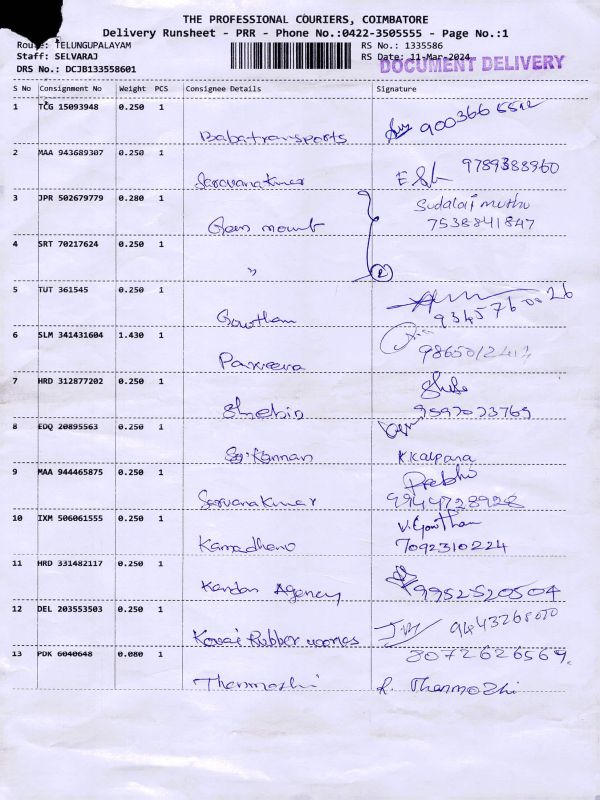 THE PROFESSIONAL COURIERS, COIMBATORE
Delivery Runsheet - PRR - Phone No.:0422-3505555 - Page No.:1
Route: TELUNGUPALAYAM RS No.: 1335586
Staff: SELVARAJ RS Date: 11-Mar-2024
DOCUMENT DELIVERY
DRS No.: DCJB133558601
S No Consignment No Weight PCS Consignee Details Signature
1 TCG 15093948 0.250 1
Babatransports
2 MAA 943689307 0.250 1 9789388960
Saravanakumar
3 JPR 502679779 0.280 1 Sudalai muthu
Gem mount 7538841847
4 SRT 70217624 0.250 1
"
5 TUT 361545 0.250 1
Gowtham
6 SLM 341431604 1.430 1
Parveena
7 HRD 312877202 0.250 1
Shebin
8 EDQ 20895563 0.250 1
K.Kalpana
9 MAA 944465875 0.250 1 Prabhu
Sarvanakumar 9944728928
10 IXM 506061555 0.250 1 V.Gowtham
Kamadhenu 7092310224
11 HRD 331482117 0.250 1
Kandan Agency 9952520504
12 DEL 203553503 0.250 1
Kovai Rubber
13 PDK 6040648 0.080 1 8072626569.
Thenmozhi R. Thenmozhi